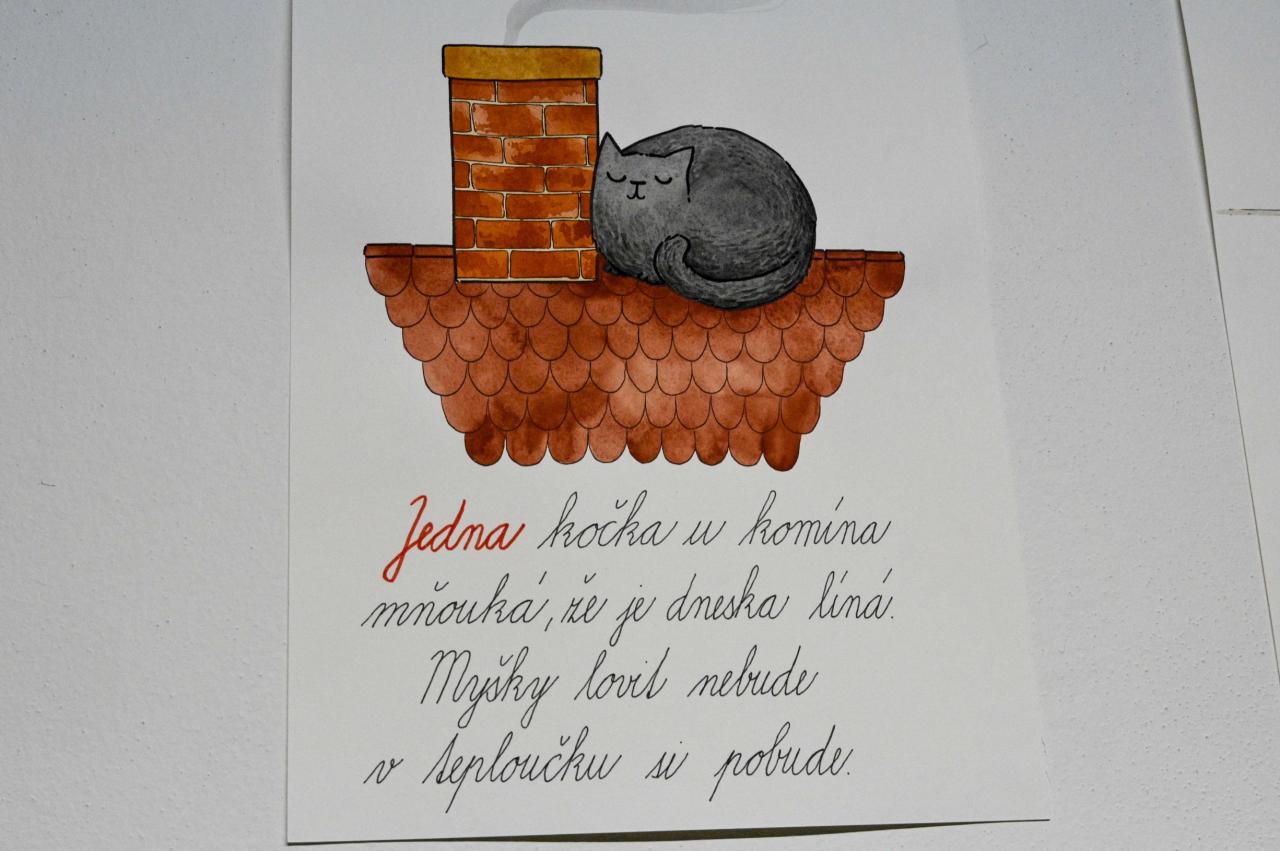 Jedna kočka u komína
mňouká, že je dneska líná.
Myšky lovit nebude
v teploučku si pobude.